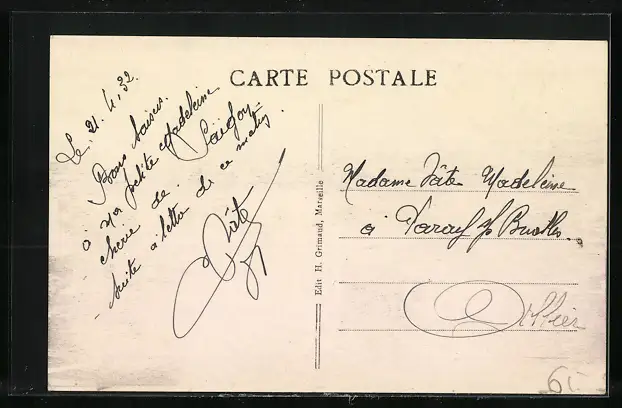 CARTE POSTALE
Le 21.4.32.
Bons baisers
à ma petite Madeleine
cherie de Saïgon-
- suite à lettre de ce matin.
Edit H. Grimaud, Marseille
Madame Pâte Madeleine
à
Allier